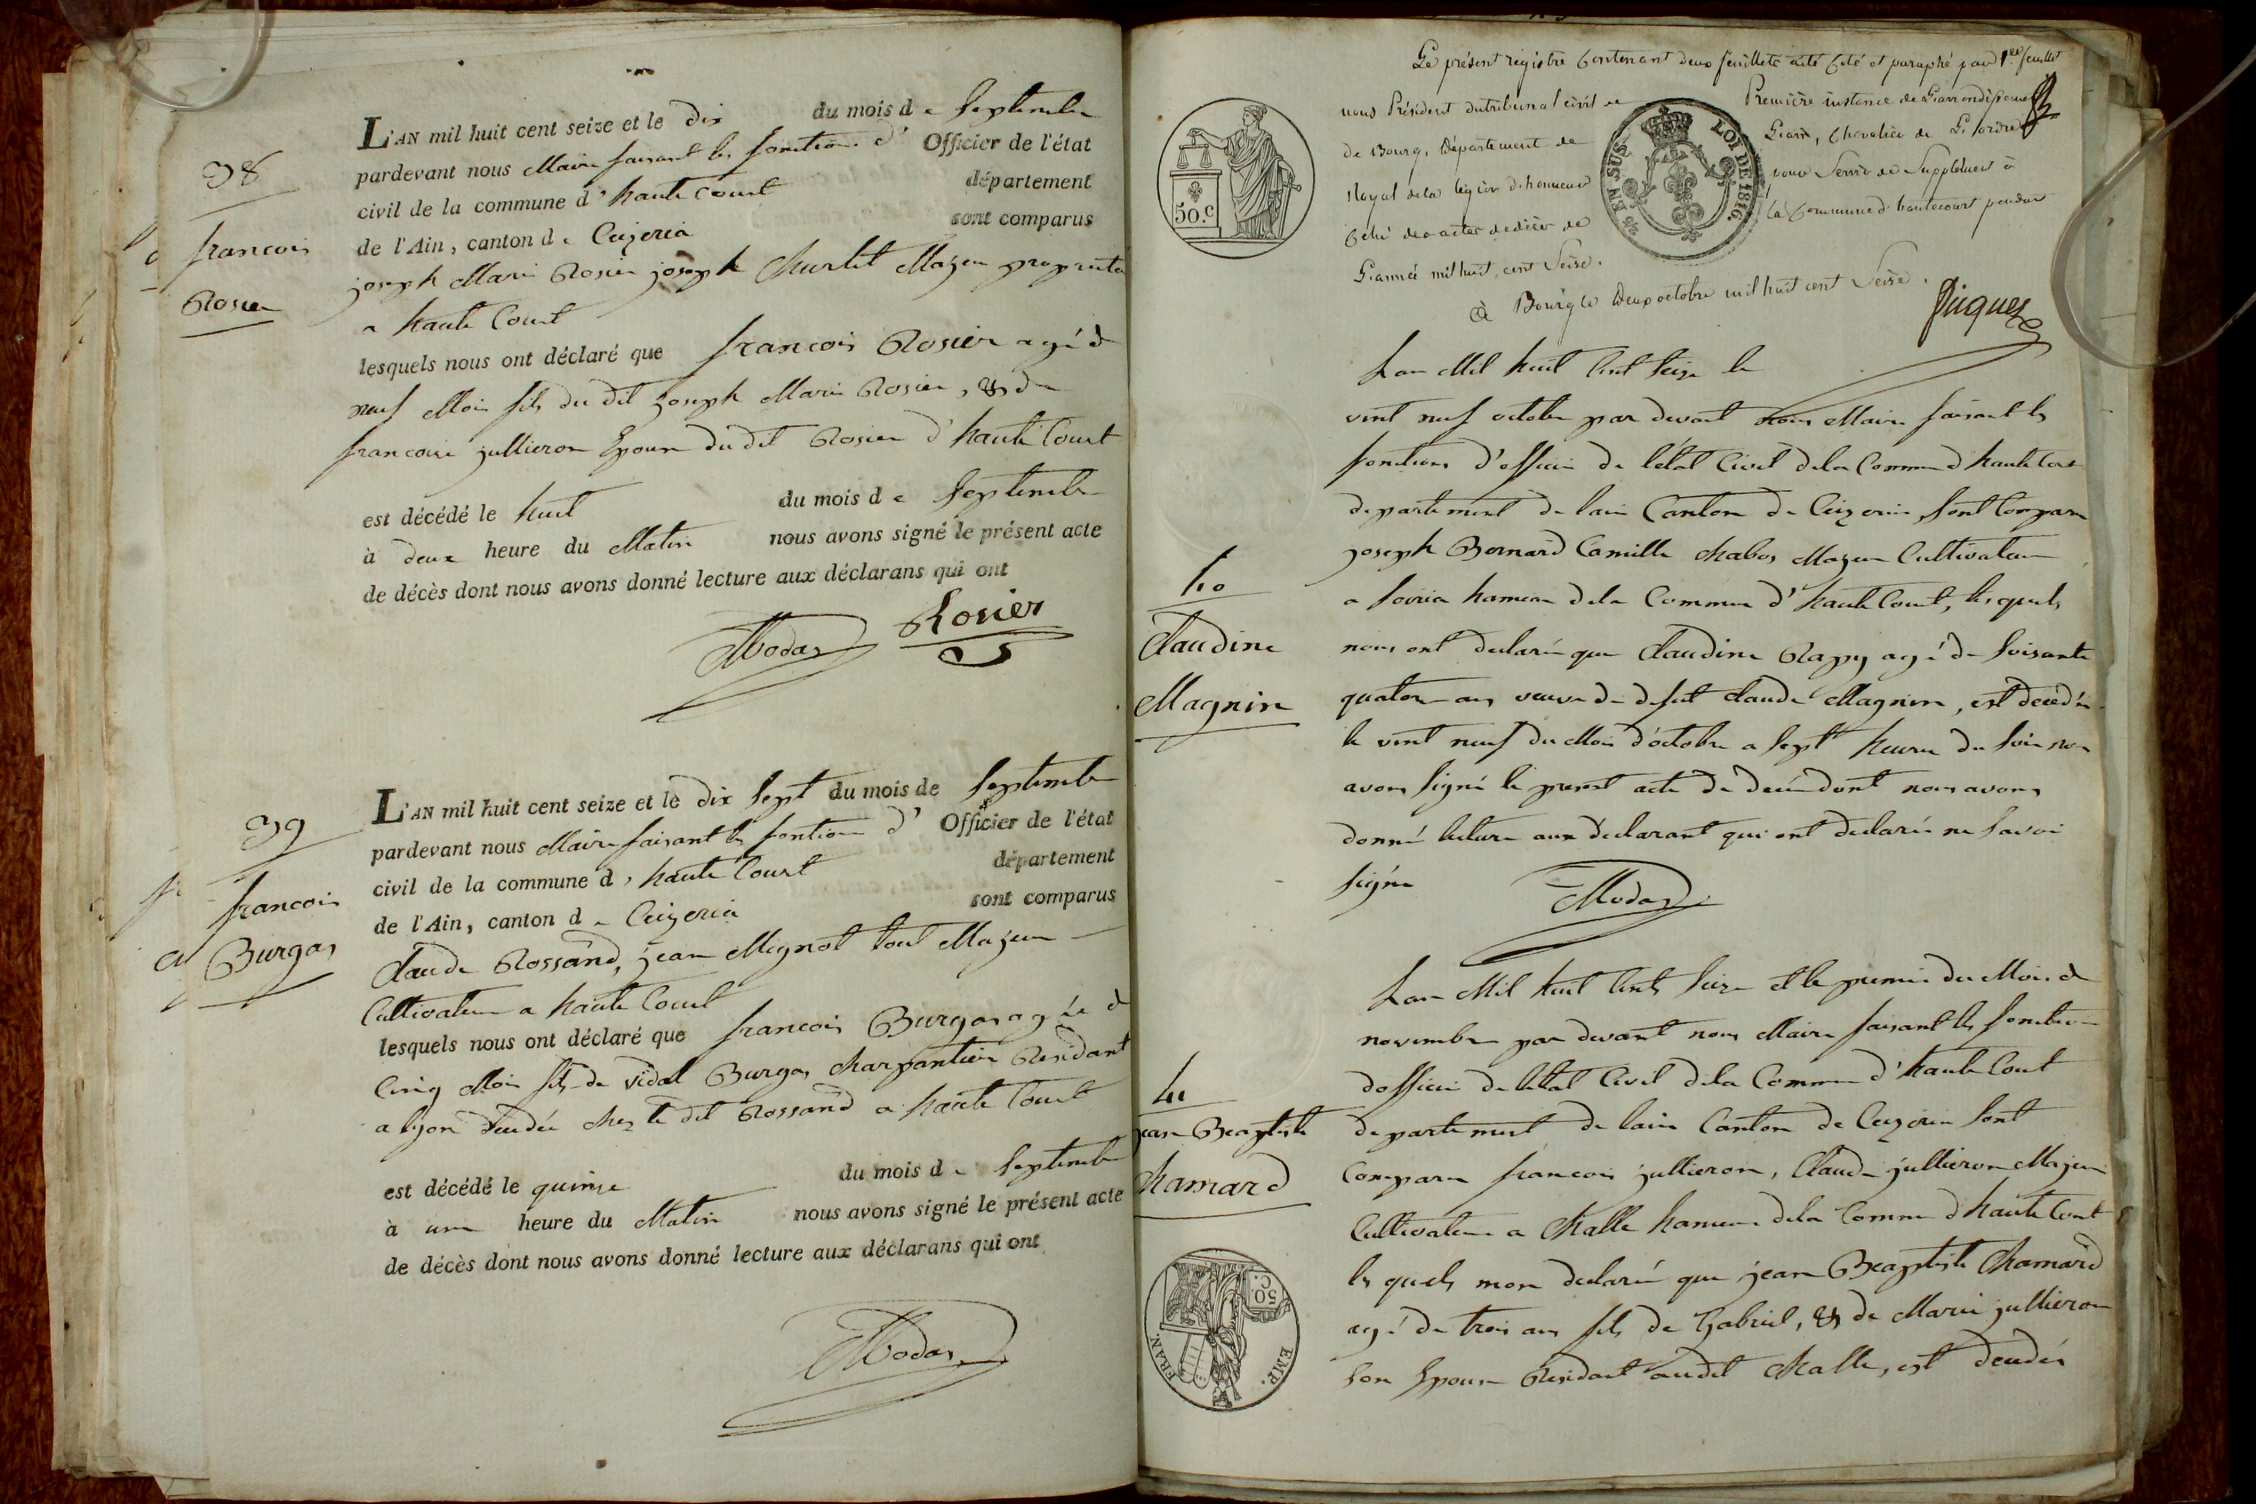 38
francois
Rosier
L'AN mil huit cent seize et le dix du mois de Septembre
pardevant nous Maire faisant les fonctions d' Officier de l'état
civil de la commune d'hautecourt département
de l'Ain, canton de Ceizeria sont comparus
joseph Marie Rosier joseph Churlet Majeu proprieta
a haute Court
lesquels nous ont déclaré que francois Rosier agé d
neuf Mois fils du dit joseph Marie Rosier, & de
francoise jullieron Epouse du dit Rosier d'haute Court
est décédé le huit du mois de Septembre
à deux heure du Matin nous avons signé le présent acte
de décès dont nous avons donné lecture aux déclarans qui ont
Rosier
Modas
39
francois
Burgas
L'AN mil huit cent seize et le dix Sept du mois de Septembre
pardevant nous Maire faisant les fontions d' Officier de l'état
civil de la commune d'haute Court département
de l'Ain, canton de Ceizeria sont comparus
Claude Rossand, jean Mignot tout Majeur
Cultivateur a haute Court
lesquels nous ont déclaré que francois Burgas agée d
Cinq Mois fils de vidal Burgas Charpantier Residant
a lyon deudée chez le dit Rossand a haute Court
est décédé le quinze du mois de Septembre
à une heure du Matin nous avons signé le présent acte
de décès dont nous avons donné lecture aux déclarans qui ont
Modas
Le présent régistre Contenant deux feuillets a été Coté et paraphé par 1er feuillet
nous Président du tribunal civil de Première instance de L'arrondissement
de Bourg, Département de L'ain, Chevalier de L'ordre
Royal de la légion d'honneur pour Servir de Supplément à
Celui des actes de décès de la Commune d'hautecourt pendant
L'année mil huit cent Seize.
à Bourg le deux octobre mil huit cent Seize.
50.c
EN SUS
LOI DE 1816.
Lan Mil huit Cent Seize le
vint neuf octobre par devant nous Maire faisant les
fonctions d'officier de l'état Civil de la Commune d haute Court
departement de lain Canton de Ceizeria, Sont Comparu
joseph Bernard Camille Chabos Majeur Cultivateur
a Sovria hameau de la Commune d'haute Court, les quels
nous ont declarée que Claudine Rapy agé de Soisante
quatorze ans veuve de defut Claude Magnin, est decedée
le vint neuf du Mois d'octobre a Sept heure du Soir nous
avons Signé le present acte de decés dont nous avons
donné lecture aux déclarant qui ont declarée ne Savoir
Signer
Modas
40
Claudine
Magnin
Lan Mil huit Cents Seize et le premier du Mois de
novembre par devant nous Maire faisant les fonctions
dofficier de letat Civil de la Commune d'haute Court
departement de lain Canton de Ceizeria Sont
Comparu francois jullieron, Claude jullieron Majeur
Cultivateur a Challe hameau de la Commune d haute Court
les quels mon declarée que jean Beaptiste Chamard
agé de trois ans fils de Gabriel, & de Marie jullieron
Son Epouse Residant audit Challe, est deudée
41
jean Beaptiste
Chamard
50 C.
EMP. FRAN.